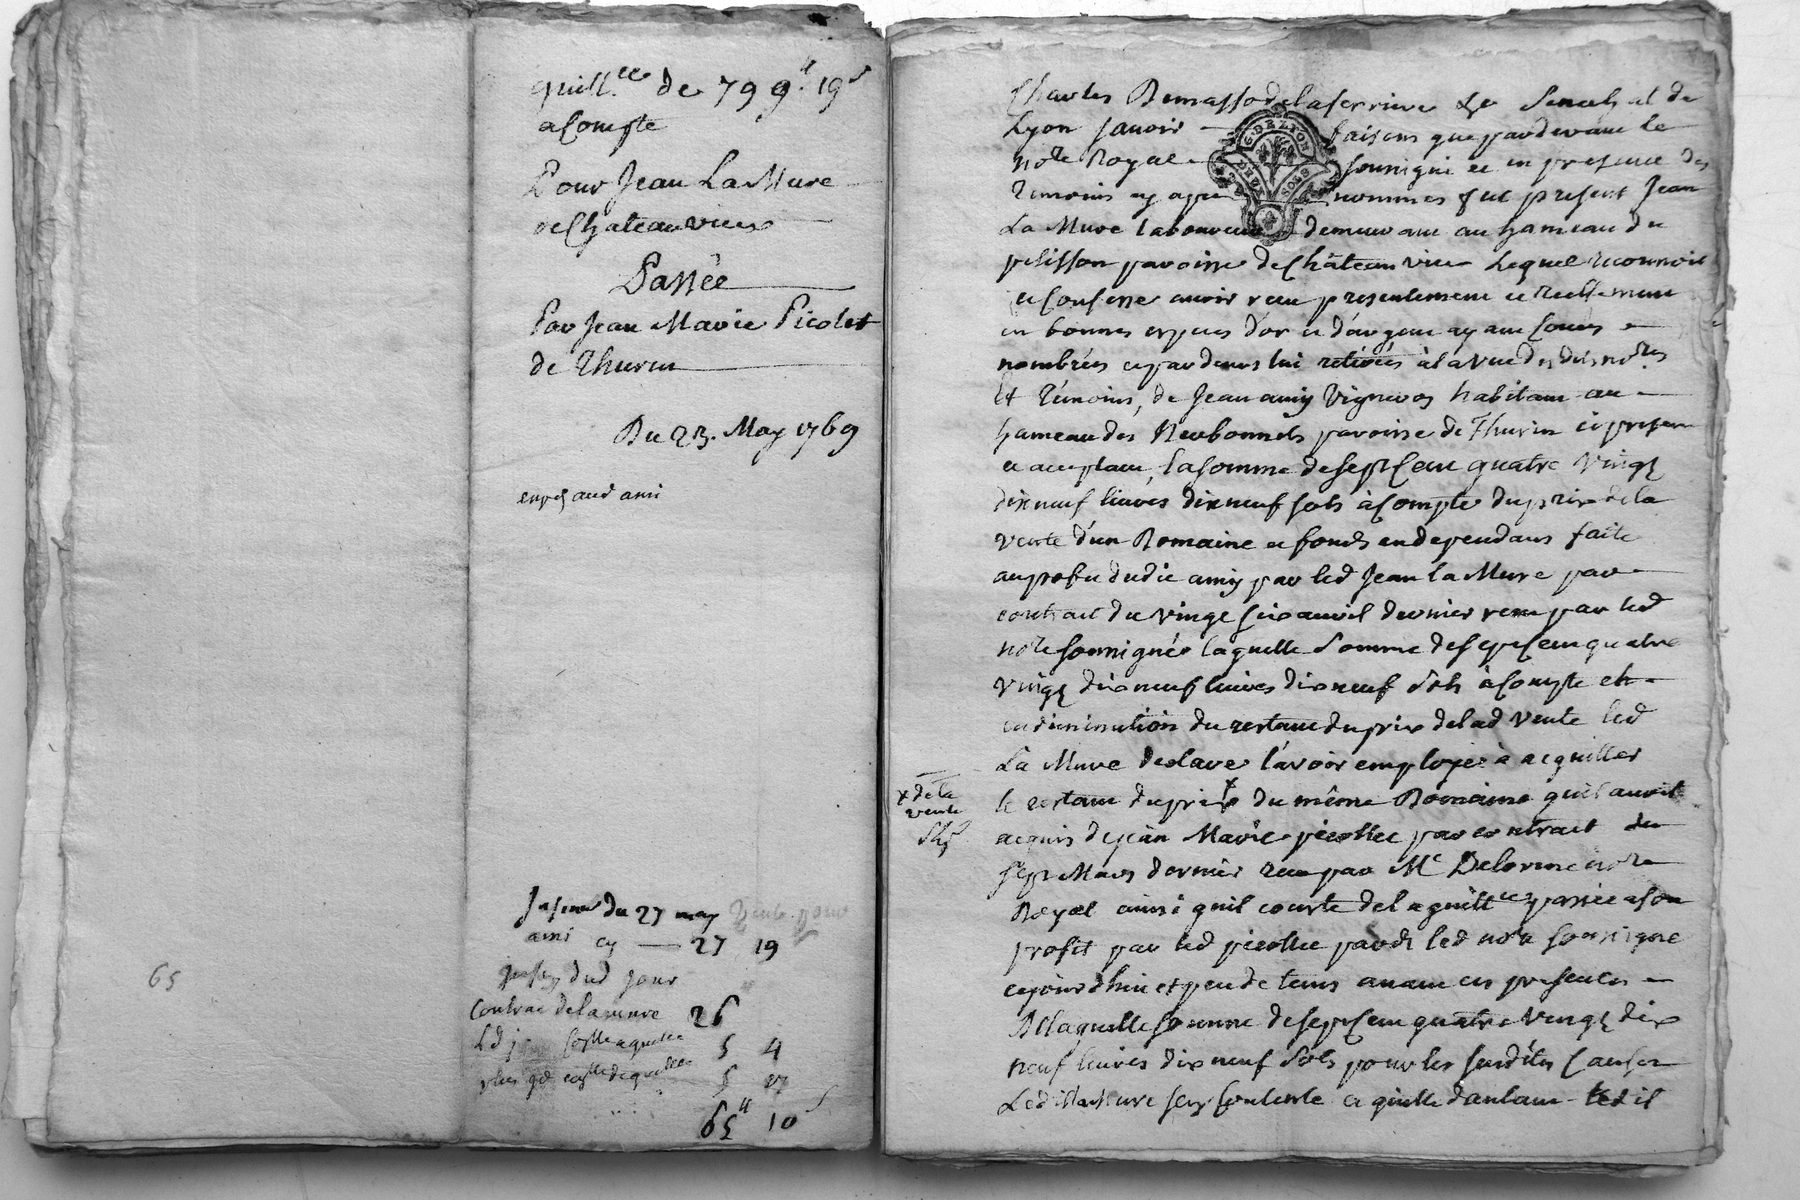 quitt.ce de 799.# 19s
a Compte
Pour Jean La Mure
de Chateauvieux
Passée
Par Jean Marie Picolet
de Thurin
Du 23. May 1769
exp aud ami
du 27 may
ami cy 27 19
dud jour
contrac de la mure 26
5 4
5
65# 10s
65
Charles de la ferriere Sr Senechal de
Lyon savoir faisons que pardevant le
nore Royal soussigné et en presence des
temoins cy apres nommes fut present Jean
La Mure laboureur demeurant au hameau du
pelisson paroisse de Châteauvieux Lequel reconnoit
et confesse avoir receu presentement et reellement
en bonnes especes d'or et d'argent ayant cours
nombrées et par devers lui retirées à la vue desdits nores
Et témoins, de Jean amy vigneron habitant au
hameau des paroisse de Thurin ici present
et acceptant, la somme de sept cent quatre vingt
dix neuf livres dix neuf sols à compte du prix de la
vente d'un Domaine et fonds en dependans faite
au profit dudit amy par led Jean la Mure par
contrait du vingt six avril dernier receu par led
nore soussigné laquelle somme de sept cent quatre
vingt dix neuf livres dix neuf sols à compte et
en diminution du restant du prix de lad vente led
La Mure declare l'avoir employée à acquitter
le restant du prix x du même Domaine quil avoit
x de la
vente
acquis de jean Marie picollet par contrait du
sept Mars dernier receu par Me Delorme nore
Royal ainsi quil conste de la quittce passée a son
profit par led picollet pardt led nore soussigné
cejourdhui et peu de tems avant ces presentes
De laquelle somme de sept cent quatre vingt dix
neuf livres dix neuf sols pour les susdites causes
Ledit la Mure sen contente et quitte dautant ledit